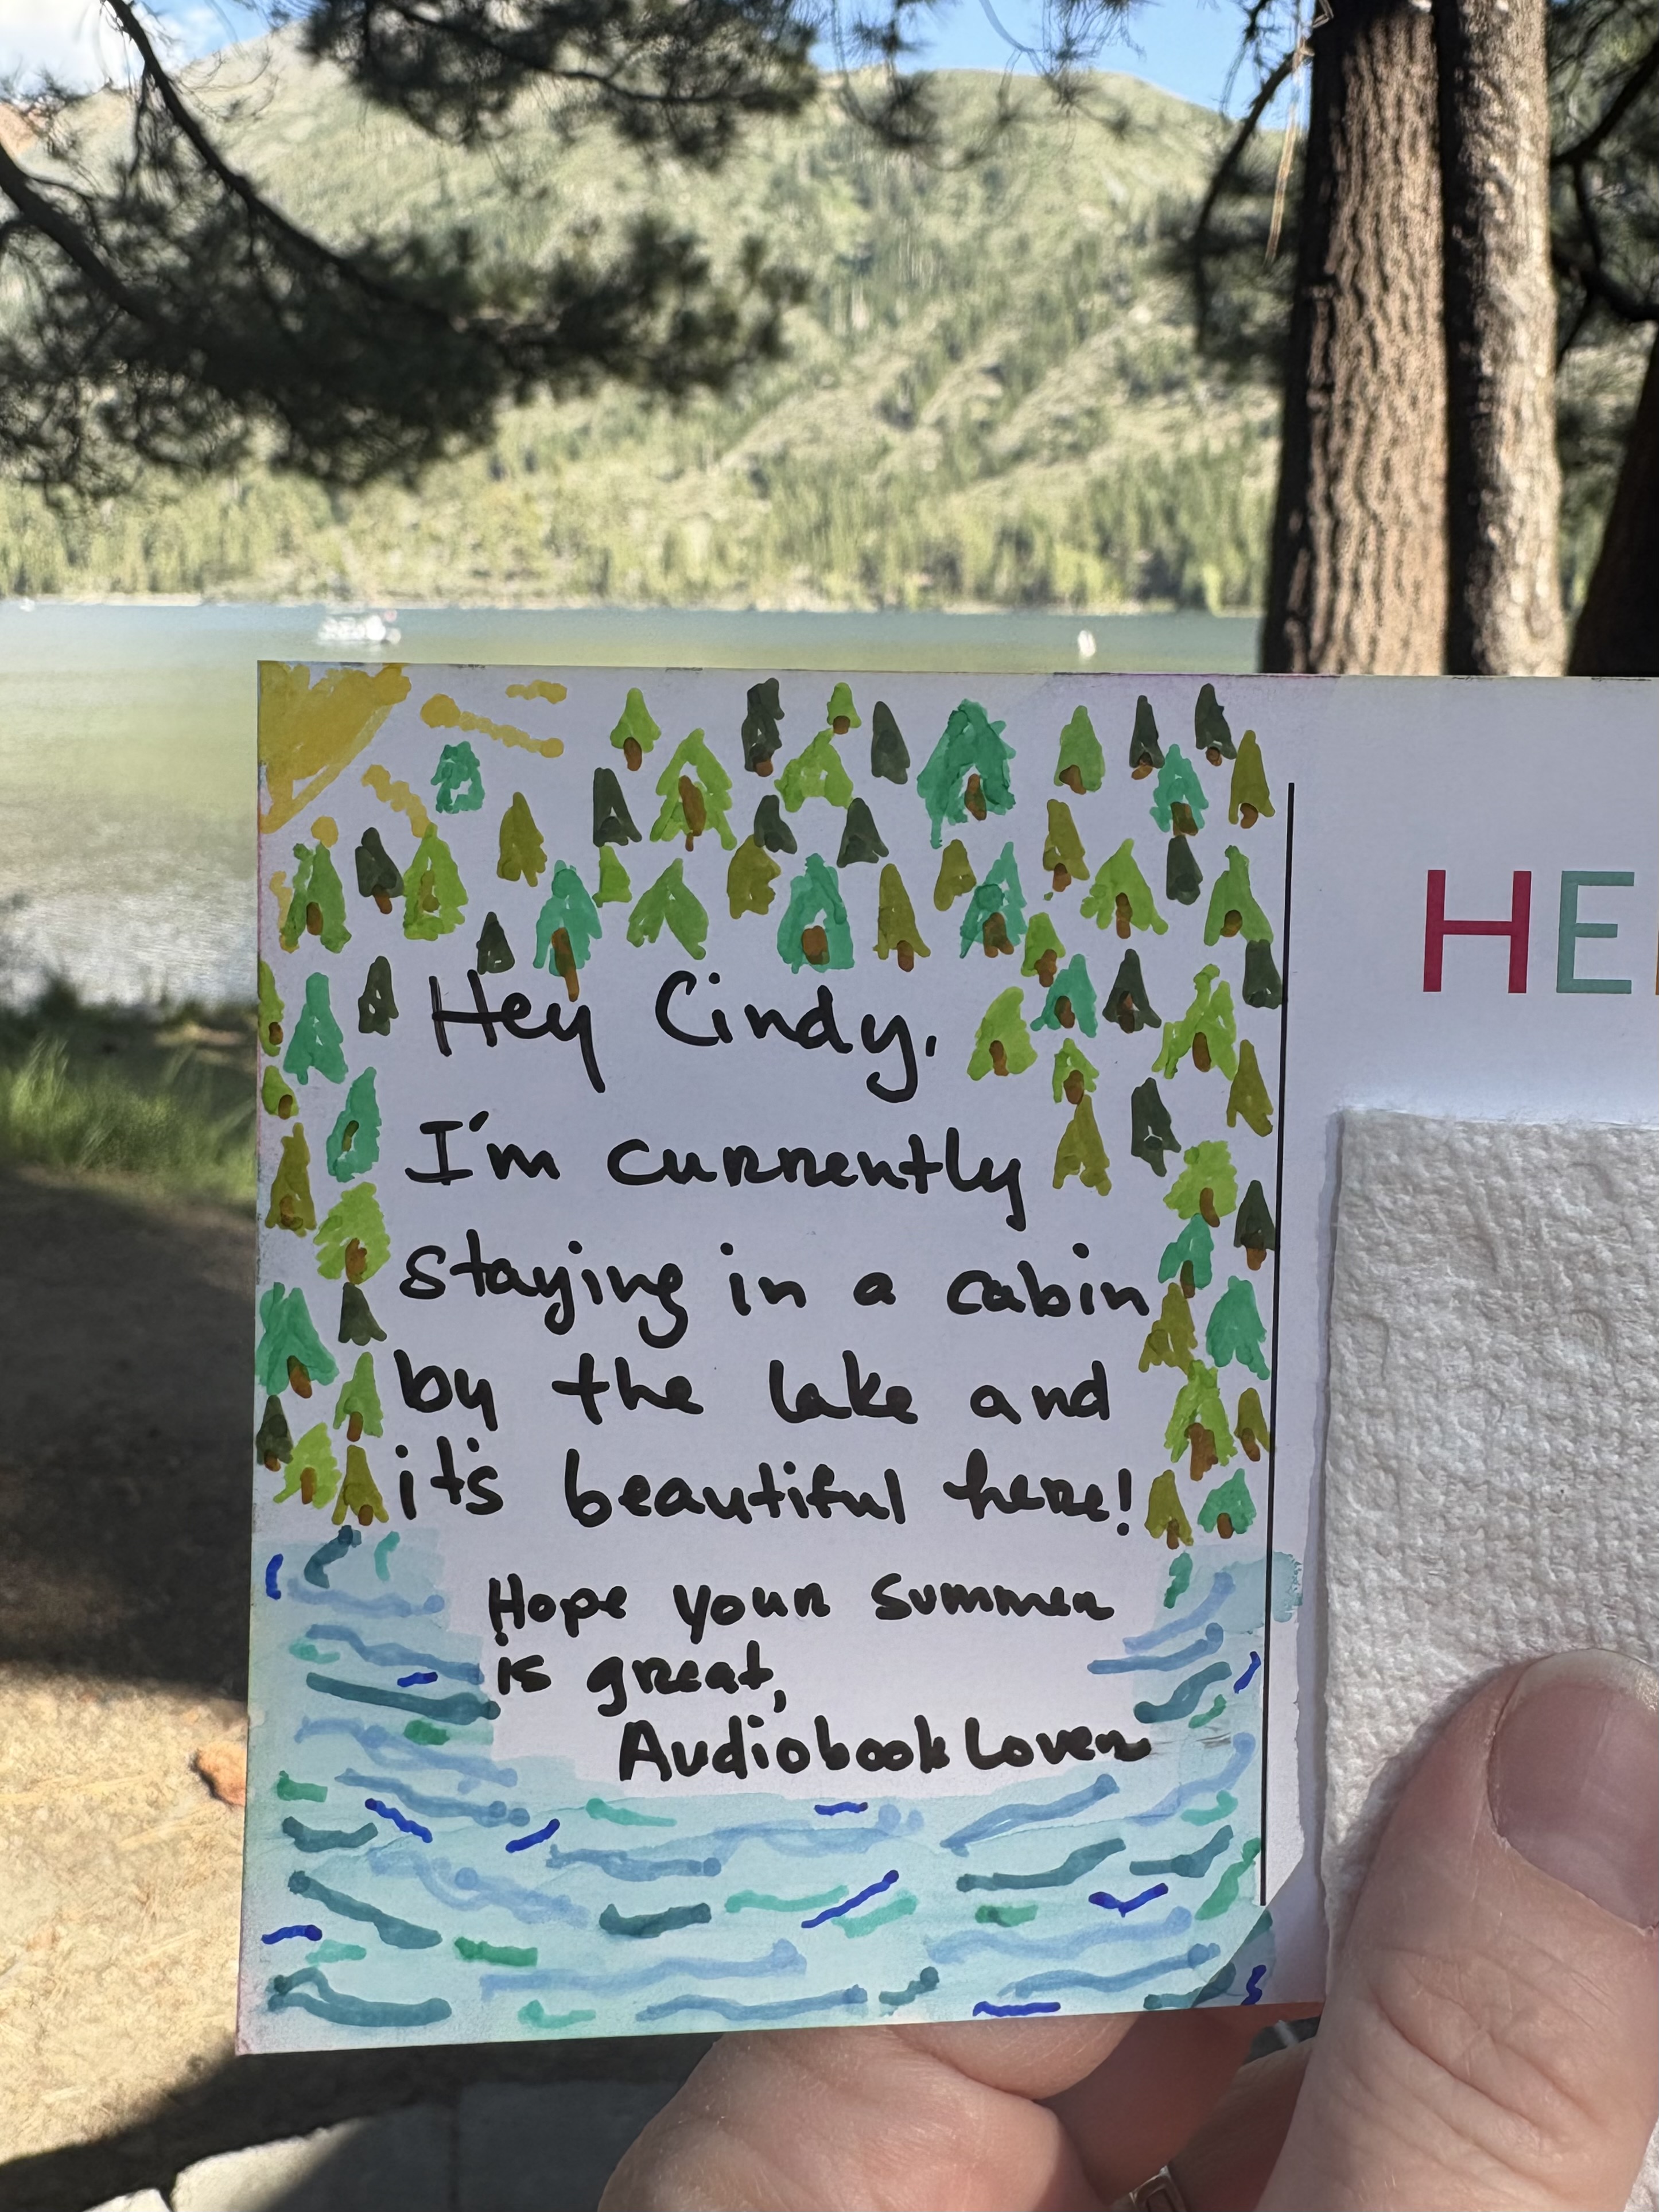 Hey Cindy,
I'm currently
staying in a cabin
by the lake and
it's beautiful here!
Hope your summer
is great,
Audiobook Lover
HE